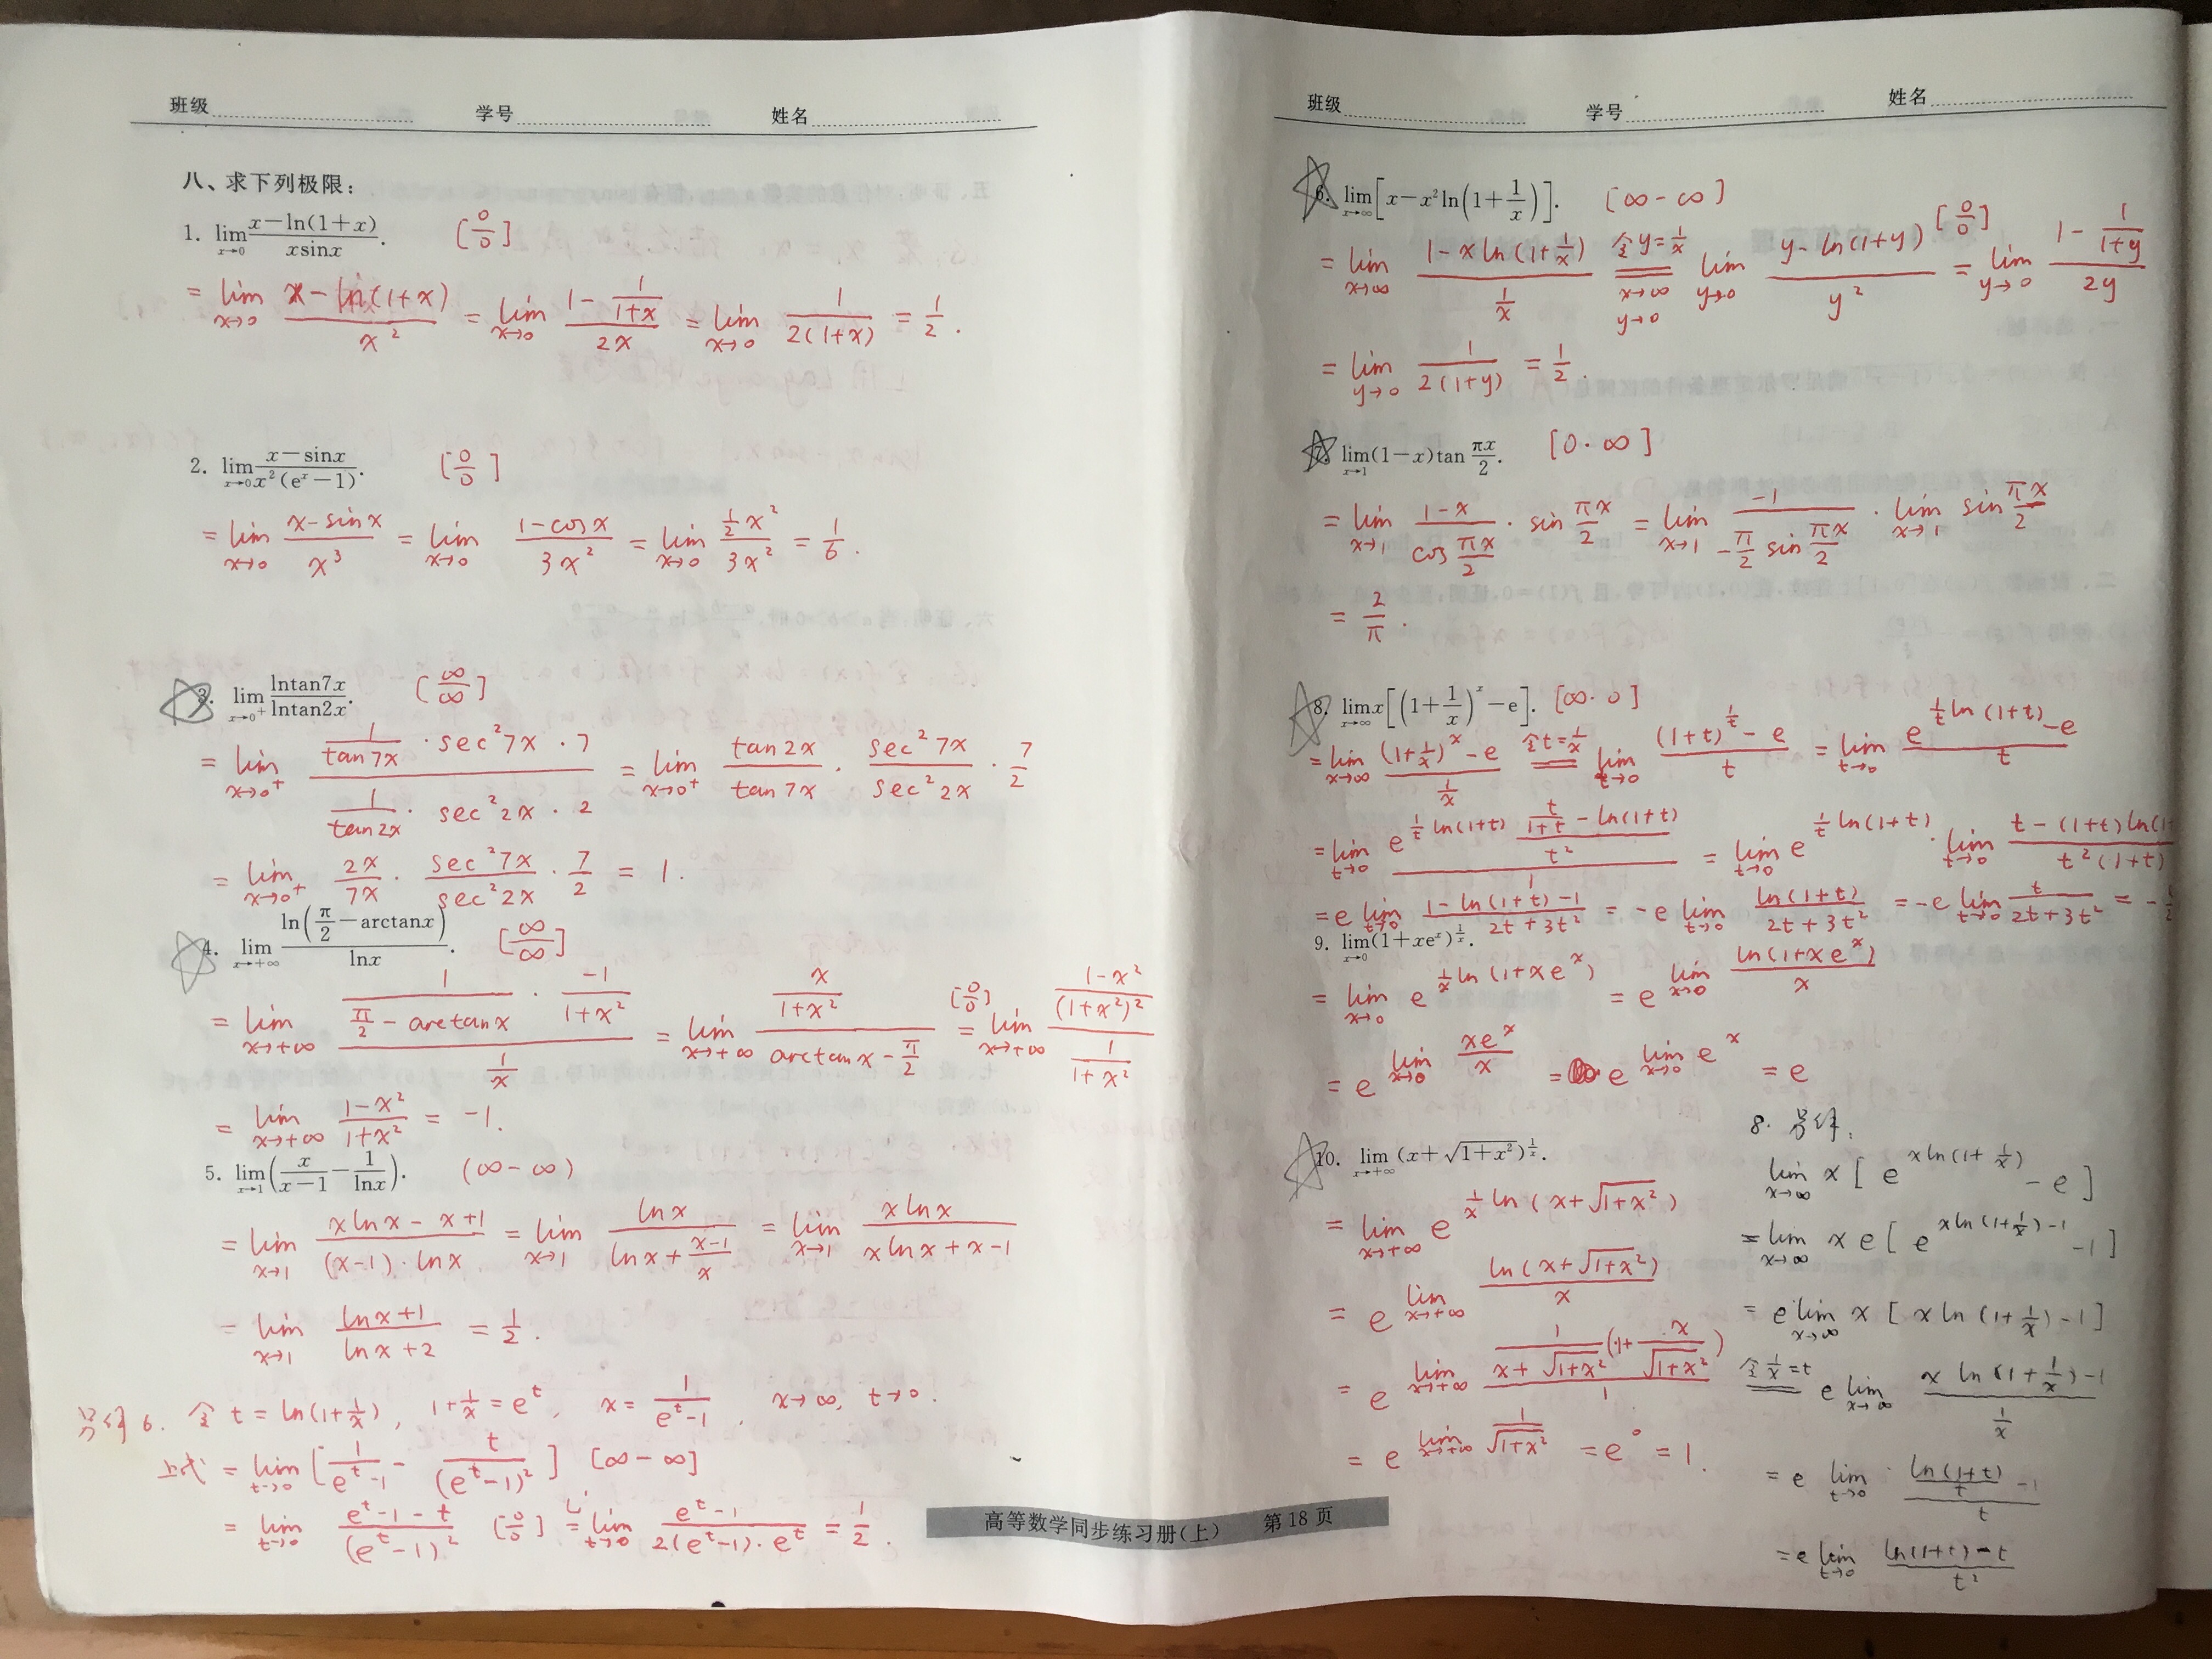 班级 学号 姓名
八、求下列极限:
1. lim_{x→0} (x-ln(1+x))/(x sinx). [0/0]
= lim_{x→0} (x-ln(1+x))/x² = lim_{x→0} (1-1/(1+x))/(2x) = lim_{x→0} 1/(2(1+x)) = 1/2.
2. lim_{x→0} (x-sinx)/(x²(e^x-1)). [0/0]
= lim_{x→0} (x-sinx)/x³ = lim_{x→0} (1-cosx)/(3x²) = lim_{x→0} (½x²)/(3x²) = 1/6.
3. lim_{x→0⁺} (lntan7x)/(lntan2x). [∞/∞]
= lim_{x→0⁺} (1/tan7x · sec²7x · 7)/(1/tan2x · sec²2x · 2) = lim_{x→0⁺} tan2x/tan7x · sec²7x/sec²2x · 7/2
= lim_{x→0⁺} 2x/7x · sec²7x/sec²2x · 7/2 = 1.
4. lim_{x→+∞} ln(π/2-arctanx)/lnx. [∞/∞]
= lim_{x→+∞} (1/(π/2-arctanx) · -1/(1+x²))/(1/x) = lim_{x→+∞} (x/(1+x²))/(arctanx-π/2) [0/0] = lim_{x→+∞} ((1-x²)/(1+x²)²)/(1/(1+x²))
= lim_{x→+∞} (1-x²)/(1+x²) = -1.
5. lim_{x→1} (x/(x-1) - 1/lnx). (∞-∞)
= lim_{x→1} (xlnx-x+1)/((x-1)·lnx) = lim_{x→1} lnx/(lnx+(x-1)/x) = lim_{x→1} xlnx/(xlnx+x-1)
= lim_{x→1} (lnx+1)/(lnx+2) = 1/2.
另解6. 令 t=ln(1+1/x), 1+1/x=e^t, x=1/(e^t-1), x→∞, t→0.
上式 = lim_{t→0} [1/(e^t-1) - t/(e^t-1)²] [∞-∞]
= lim_{t→0} (e^t-1-t)/(e^t-1)² [0/0] =^{L'} lim_{t→0} (e^t-1)/(2(e^t-1)·e^t) = 1/2.
班级 学号 姓名
6. lim_{x→∞} [x-x²ln(1+1/x)]. [∞-∞]
= lim_{x→∞} (1-xln(1+1/x))/(1/x) 令y=1/x x→∞ y→0 lim_{y→0} (y-ln(1+y))/y² [0/0] = lim_{y→0} (1-1/(1+y))/(2y)
= lim_{y→0} 1/(2(1+y)) = 1/2.
7. lim_{x→1} (1-x)tan πx/2. [0·∞]
= lim_{x→1} (1-x)/(cos πx/2) · sin πx/2 = lim_{x→1} -1/(-π/2 sin πx/2) · lim_{x→1} sin πx/2
= 2/π.
8. lim_{x→∞} x[(1+1/x)^x-e]. [∞·0]
= lim_{x→∞} ((1+1/x)^x-e)/(1/x) 令t=1/x lim_{t→0} ((1+t)^{1/t}-e)/t = lim_{t→0} (e^{1/t ln(1+t)}-e)/t
= lim_{t→0} (e^{1/t ln(1+t)} (t/(1+t)-ln(1+t))/t²)/1 = lim_{t→0} e^{1/t ln(1+t)} · lim_{t→0} (t-(1+t)ln(1+/(t²(1+t)
= e lim_{t→0} (1-ln(1+t)-1)/(2t+3t²) = -e lim_{t→0} ln(1+t)/(2t+3t²) = -e lim_{t→0} t/(2t+3t²) = -
9. lim_{x→0} (1+xe^x)^{1/x}.
= lim_{x→0} e^{1/x ln(1+xe^x)} = e^{lim_{x→0} ln(1+xe^x)/x}
= e^{lim_{x→0} xe^x/x} = e^{lim_{x→0} e^x} = e
10. lim_{x→+∞} (x+√(1+x²))^{1/x}.
= lim_{x→+∞} e^{1/x ln(x+√(1+x²))}
= e^{lim_{x→+∞} ln(x+√(1+x²))/x}
= e^{lim_{x→+∞} (1/(x+√(1+x²)) (1+x/√(1+x²)))/1}
= e^{lim_{x→+∞} 1/√(1+x²)} = e⁰ = 1.
8. 另解:
lim_{x→∞} x[e^{xln(1+1/x)} - e]
= lim_{x→∞} xe[e^{xln(1+1/x)-1} -1]
= e lim_{x→∞} x[xln(1+1/x)-1]
令1/x=t e lim_{x→∞} (xln(1+1/x)-1)/(1/x)
= e lim_{t→0} (ln(1+t)/t -1)/t
= e lim_{t→0} (ln(1+t)-t)/t²
高等数学同步练习册(上) 第18页